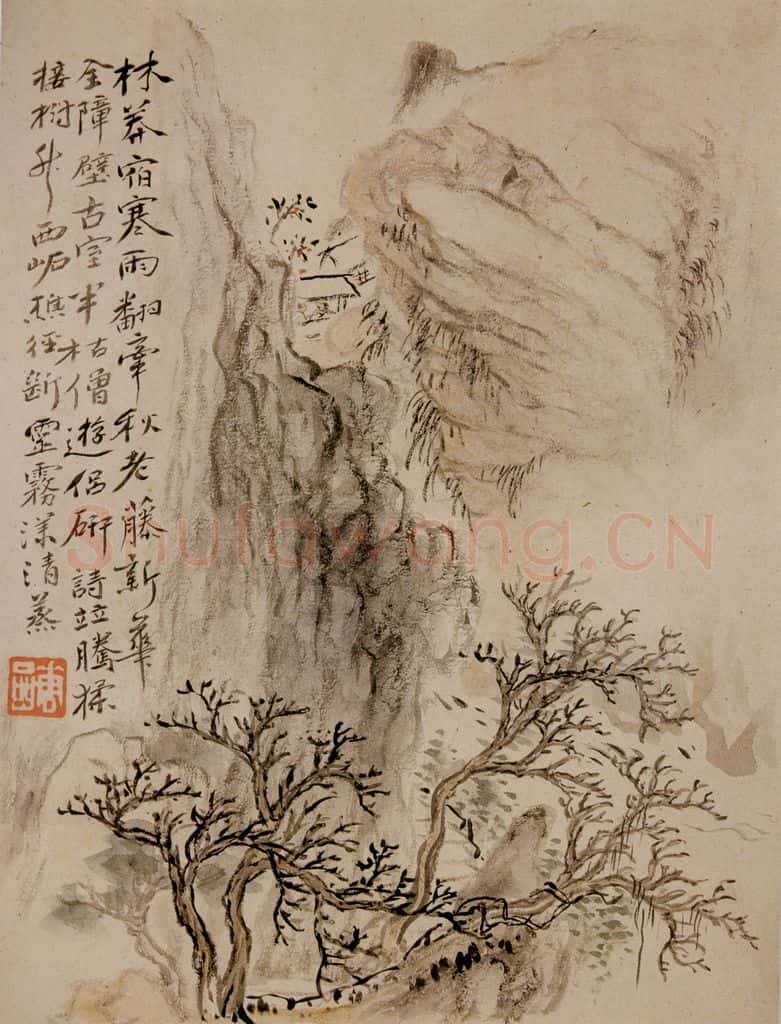 林莽宿寒雨翻牽秋老藤新華
全障壁古室半枯僧遊侶研詩竝騰猱
接樹升西岵樵徑斷靈霧深清蒸
Shufawang.CN